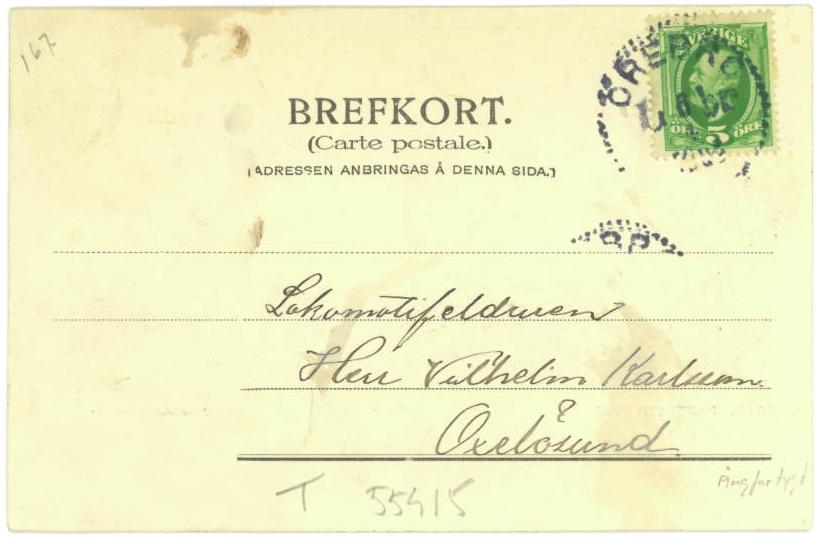 167.
SVERIGE
ÖREBRO
ÖRE 5 ÖRE
BREFKORT.
(Carte postale.)
(ADRESSEN ANBRINGAS Å DENNA SIDA.)
Lokomotifeldaren
Herr Vilhelm Karlsson
Oxelösund
Ångfartyg
T 55415